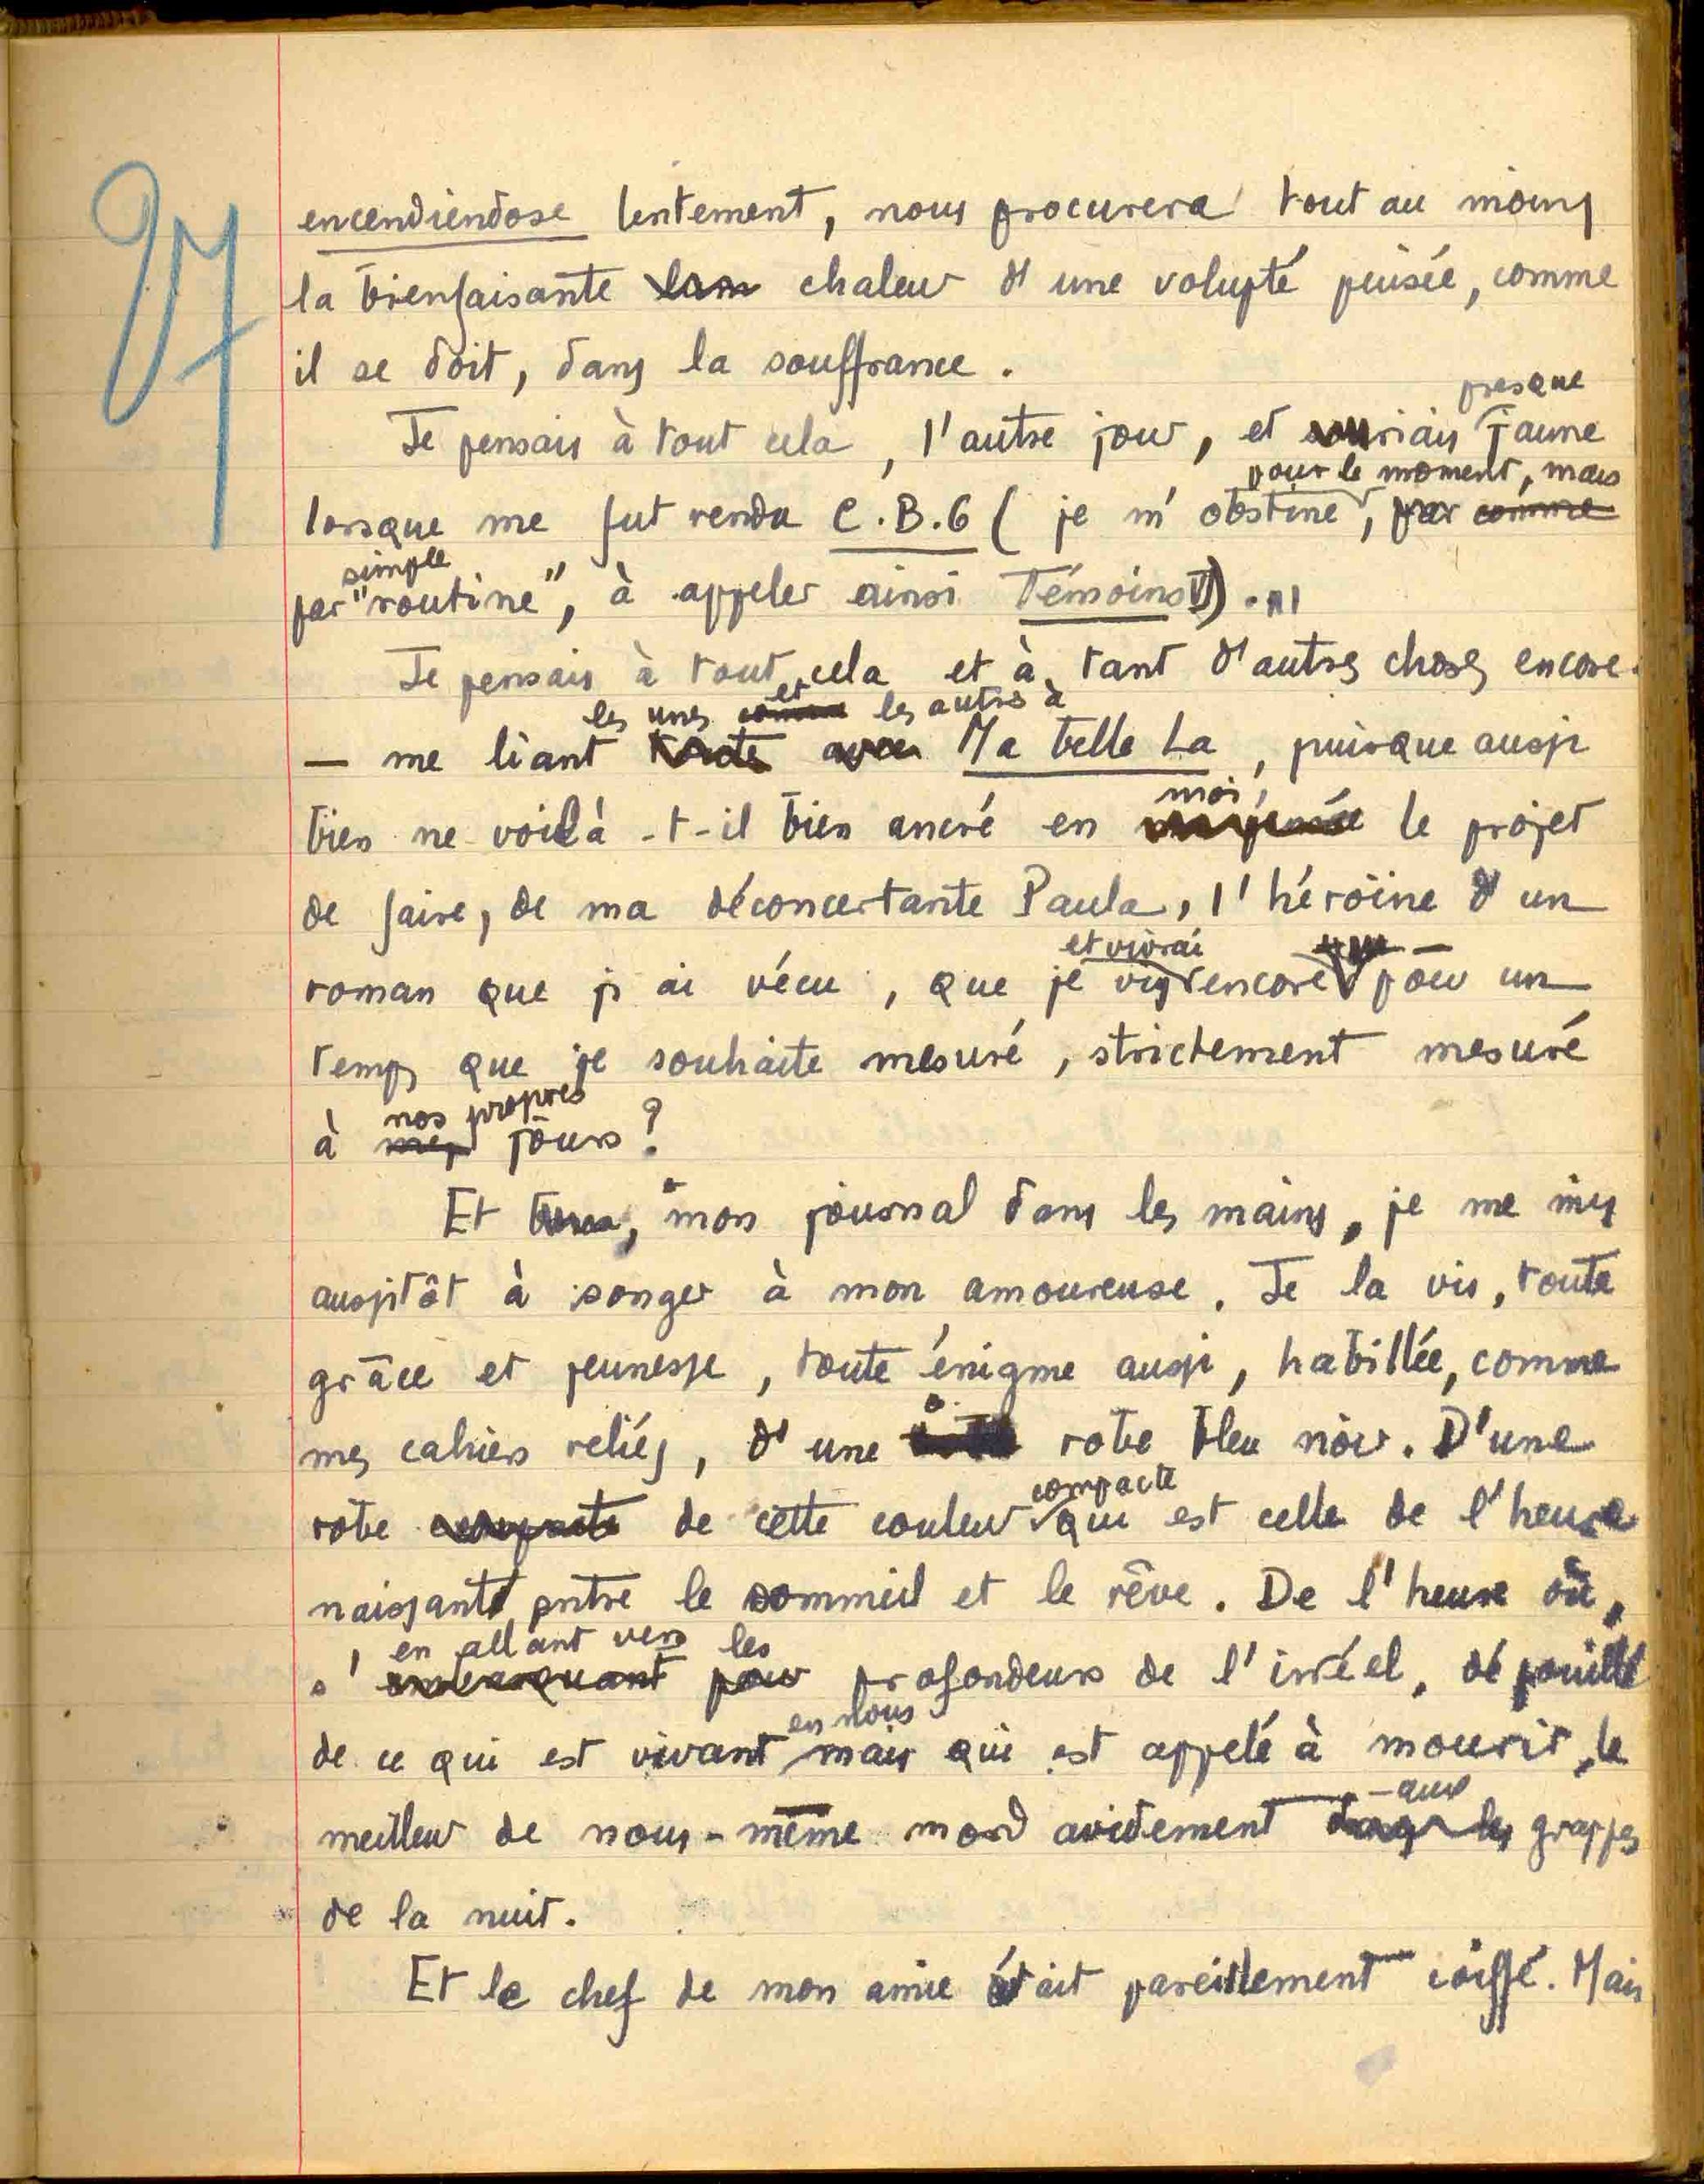 27
encendiendose lentement, nous procurera tout au moins
la bienfaisante chaleur d'une volupté puisée, comme
il se doit, dans la souffrance.
presque
Je pensais à tout cela, l'autre jour, et souriais jaune
pour le moment, mais
lorsque me fut rendu C.B.6 ( je m'obstine, par comme
simple
par "routine", à appeler ainsi Témoins VI) ...
Je pensais à tout cela et à tant d'autres choses encore.
les unes comme et les autres à
— me liant toute avec Ma belle La, puisque aussi
moi,
bien ne voilà-t-il bien ancré en ma pensée le projet
de faire, de ma déconcertante Paula, l'héroïne d'un
et vivrai
roman que j'ai vécu, que je vis encore pour un
temps que je souhaite mesuré, strictement mesuré
nos propres
à mes jours?
Et mon journal dans les mains, je me mis
aussitôt à songer à mon amoureuse. Je la vis, toute
grâce et jeunesse, toute énigme aussi, habillée, comme
mes cahiers reliés, d'une robe bleu noir. D'une
compacte
robe compacte de cette couleur qui est celle de l'heure
naissante entre le sommeil et le rêve. De l'heure où,
en allant vers les
s'embarquant pour profondeurs de l'irréel, dépouillé
en nous
de ce qui est vivant mais qui est appelé à mourir, le
aux
meilleur de nous-même mord avidement dans les grappes
de la nuit.
Et le chef de mon amie était pareillement coiffé. Mais